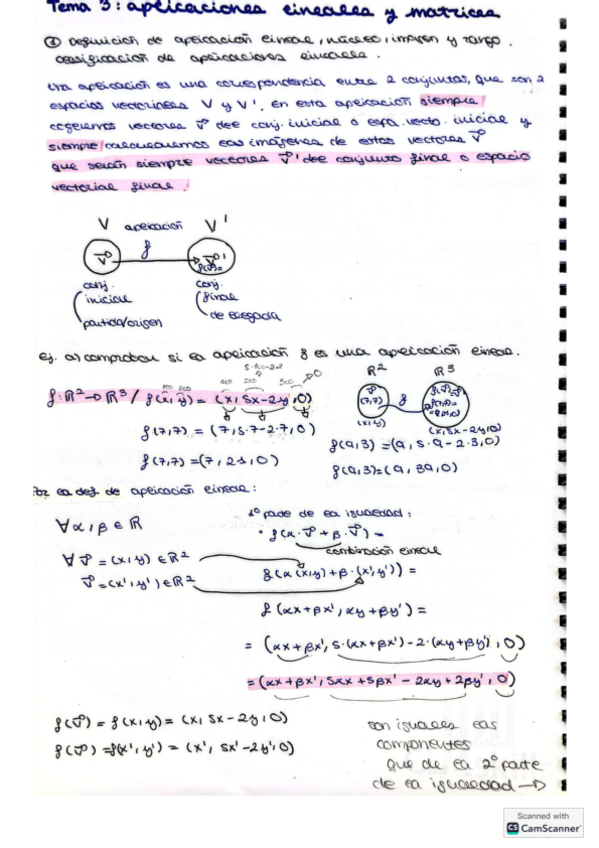 Tema 3: aplicaciones lineales y matrices
① Definición de aplicación lineal, núcleo, imagen y rango.
clasificación de aplicaciones lineales.
Una aplicación es una correspondencia entre 2 conjuntos, que son 2
espacios vectoriales V y V'. En esta aplicación siempre
cogeremos vectores v⃗ del conj. inicial o espa. vecto. inicial y
siempre calcularemos las imágenes de estos vectores v⃗
que serán siempre vectores v⃗' del conjunto final o espacio
vectorial final.
V aplicación V'
f
v⃗ v⃗'
f(v⃗)=
conj. conj.
inicial final
partida/origen de llegada
Ej. a) comprobar si la aplicación f es una aplicación lineal.
R² R³
f: R² → R³ / f(x,y) = (x, 5x-2y, 0)
(7,7) f
(x,y) (x,5x-2y,0)
f(7,7) = (7, 5·7-2·7, 0) f(9,3) = (9, 5·9-2·3, 0)
f(7,7) = (7, 21, 0) f(9,3) = (9, 39, 0)
Por la def. de aplicación lineal:
∀ α, β ∈ R
1º parte de la igualdad:
• f(α·v⃗ + β·v⃗) =
combinación lineal
∀ v⃗ = (x,y) ∈ R²
v⃗ = (x',y') ∈ R²
f(α(x,y) + β·(x',y')) =
f(αx+βx', αy+βy') =
= (αx+βx', 5·(αx+βx') - 2·(αy+βy'), 0)
= (αx+βx', 5αx+5βx' - 2αy+2βy', 0)
f(v⃗) = f(x,y) = (x, 5x-2y, 0)
f(v⃗) = f(x',y') = (x', 5x'-2y', 0)
son iguales las
componentes
que de la 2º parte
de la igualdad →
Scanned with
CS CamScanner